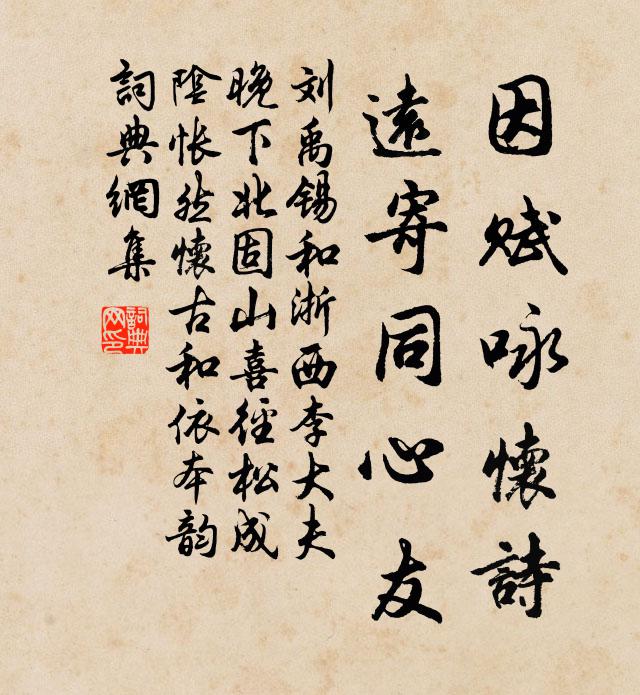 因赋咏懷詩
遠寄同心友
刘禹锡和浙西李大夫
晚下北固山喜径松成
陰怅然懷古和依本韵
詞典網集
詞典网印